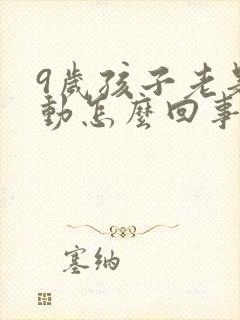 9歲孩子老是
動怎麼回事
塞納